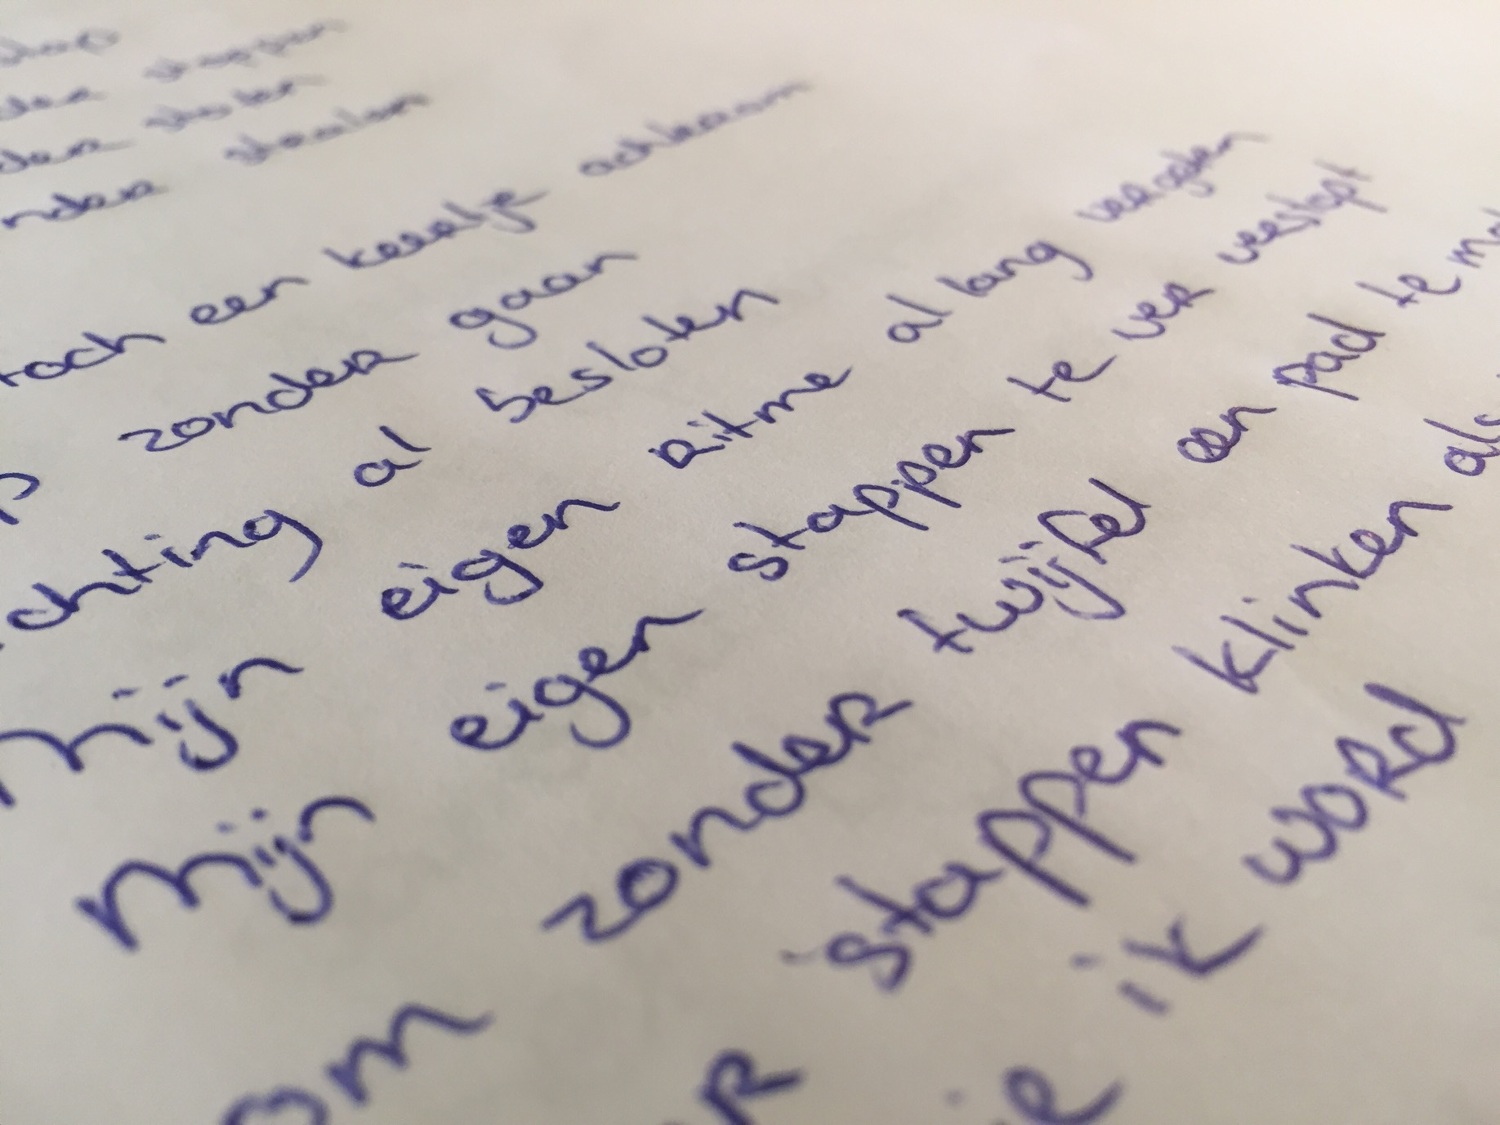 stap
der stappen
der
nder
toch een keertje achterom
p zonder gaan
chting al besloten
mijn eigen ritme al lang vergeten
mijn eigen stappen te ver verstopt
om zonder twijfel een pad te ma
er stappen klinken als
ie ik word